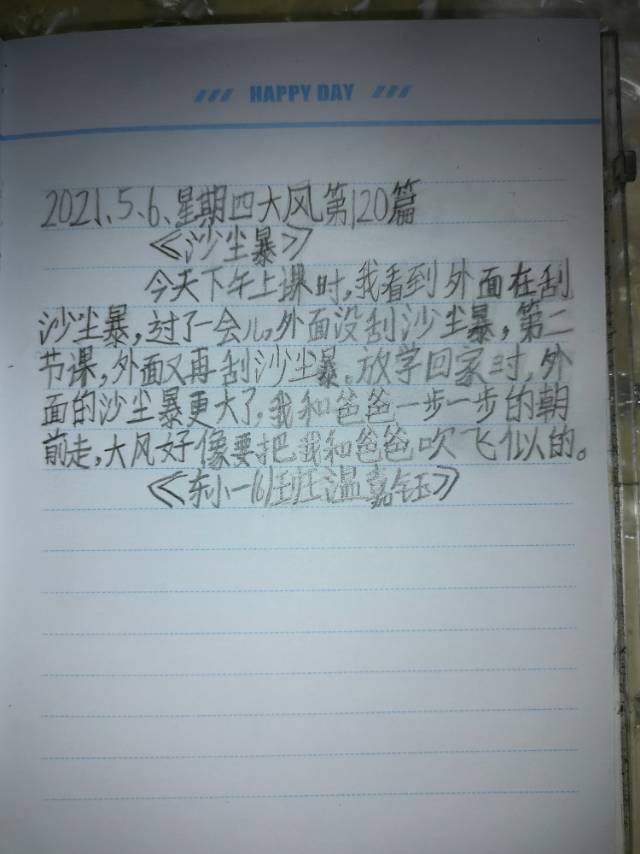 HAPPY DAY
2021、5、6、星期四大风第120篇
《沙尘暴》
今天下午上课时,我看到外面在刮
沙尘暴,过了一会儿。外面没刮沙尘暴,第二
节课,外面又再刮沙尘暴。放学回家时,外
面的沙尘暴更大了,我和爸爸一步一步的朝
前走,大风好像要把我和爸爸吹飞似的。
《东小一(6)班温嘉钰》